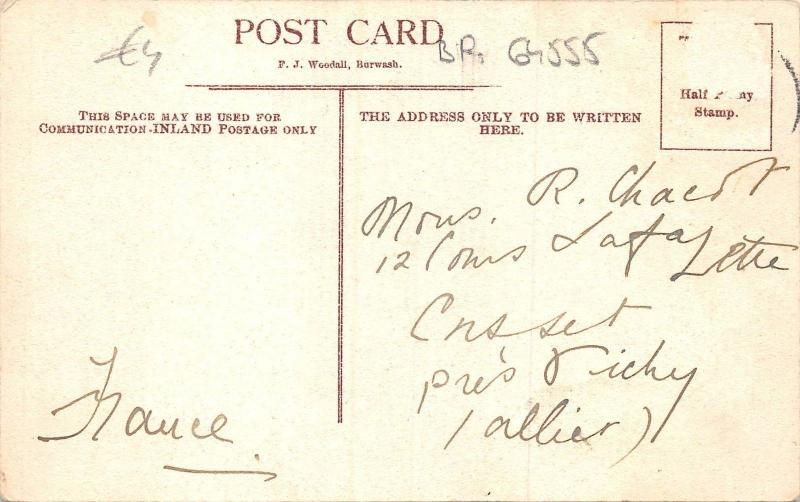 POST CARD
£4
BR. 64555
F. J. Woodall, Burwash.
THIS SPACE MAY BE USED FOR
COMMUNICATION-INLAND POSTAGE ONLY
THE ADDRESS ONLY TO BE WRITTEN
HERE.
Half ny
Stamp.
Mons. R. Chacot
12 Cours Lafayette
Cusset
près Vichy
(allier)
France